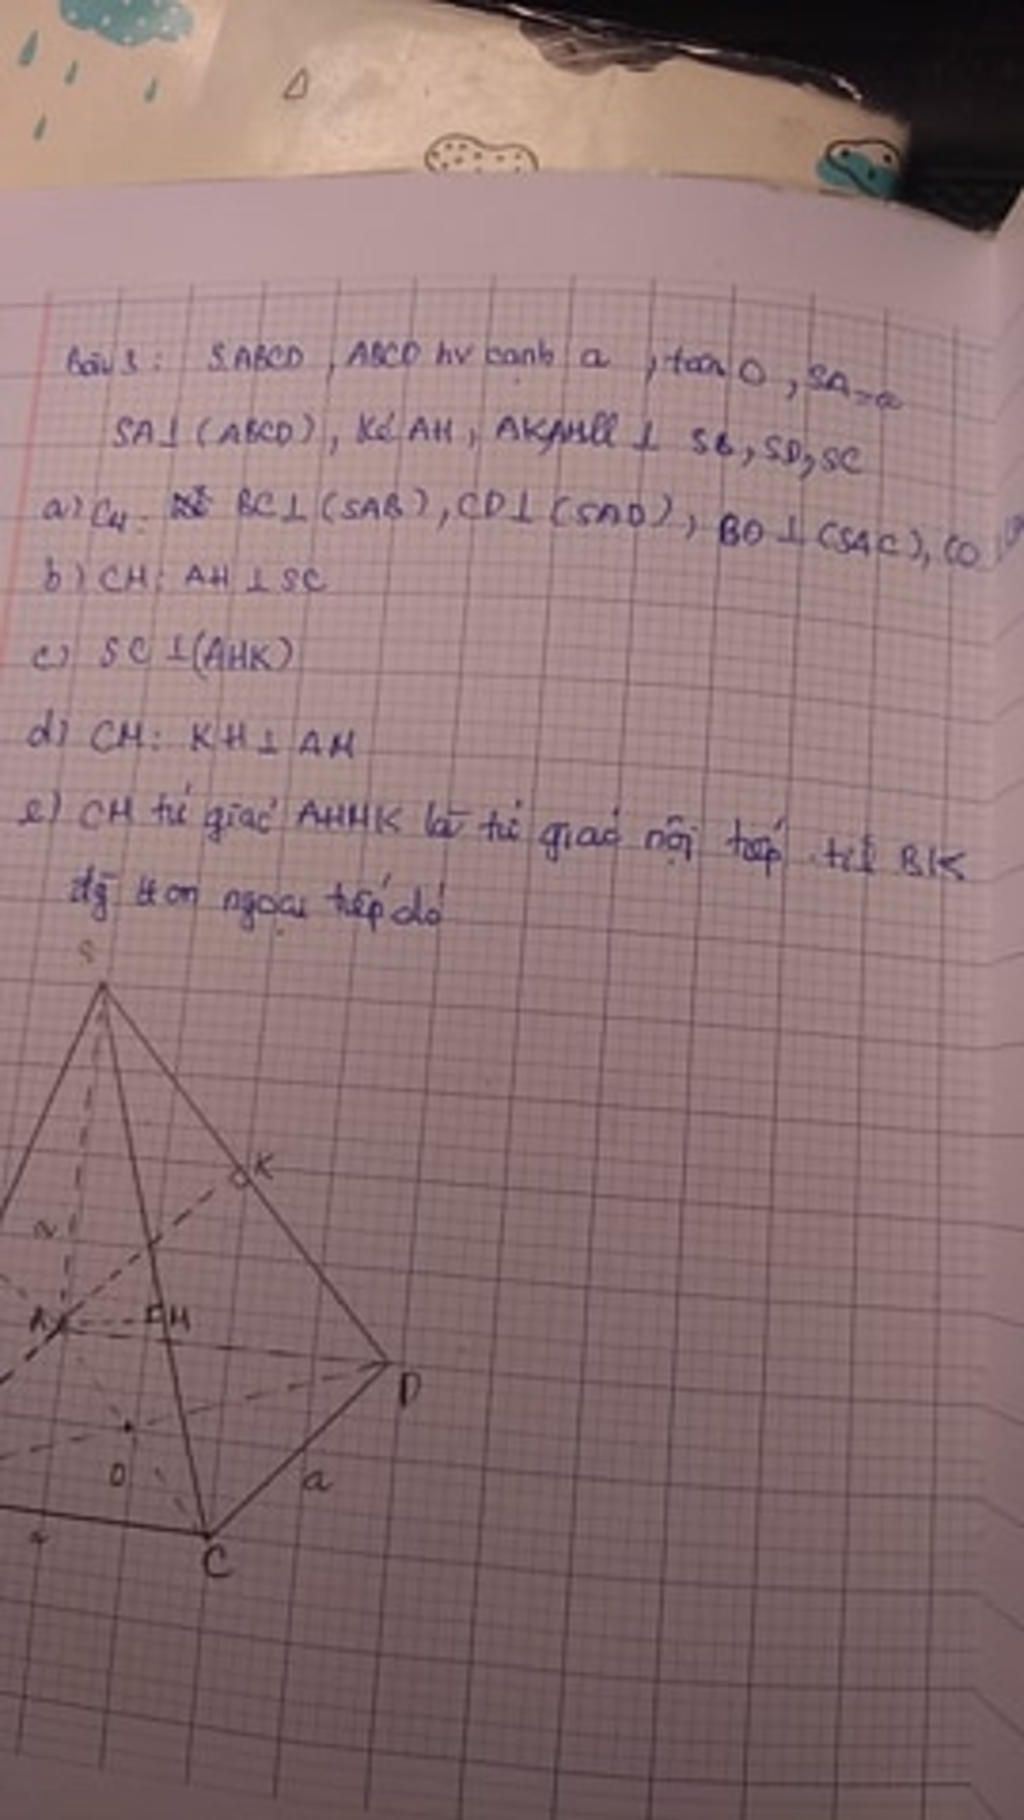 Bài 3: S.ABCD, ABCD hv cạnh a, tâm O, SA=a
SA⊥(ABCD), Kẻ AH, AK, AM ⊥ SB, SD, SC
a) CM: BC⊥(SAB), CD⊥(SAD), BD⊥(SAC),
b) CM: AH⊥SC
c) SC⊥(AHK)
d) CM: KH⊥AM
e) CM tứ giác AHMK là tứ giác nội tiếp. tìf BK
đg tròn ngoại tiếp đó
S
K
a
A
M
D
O
a
C